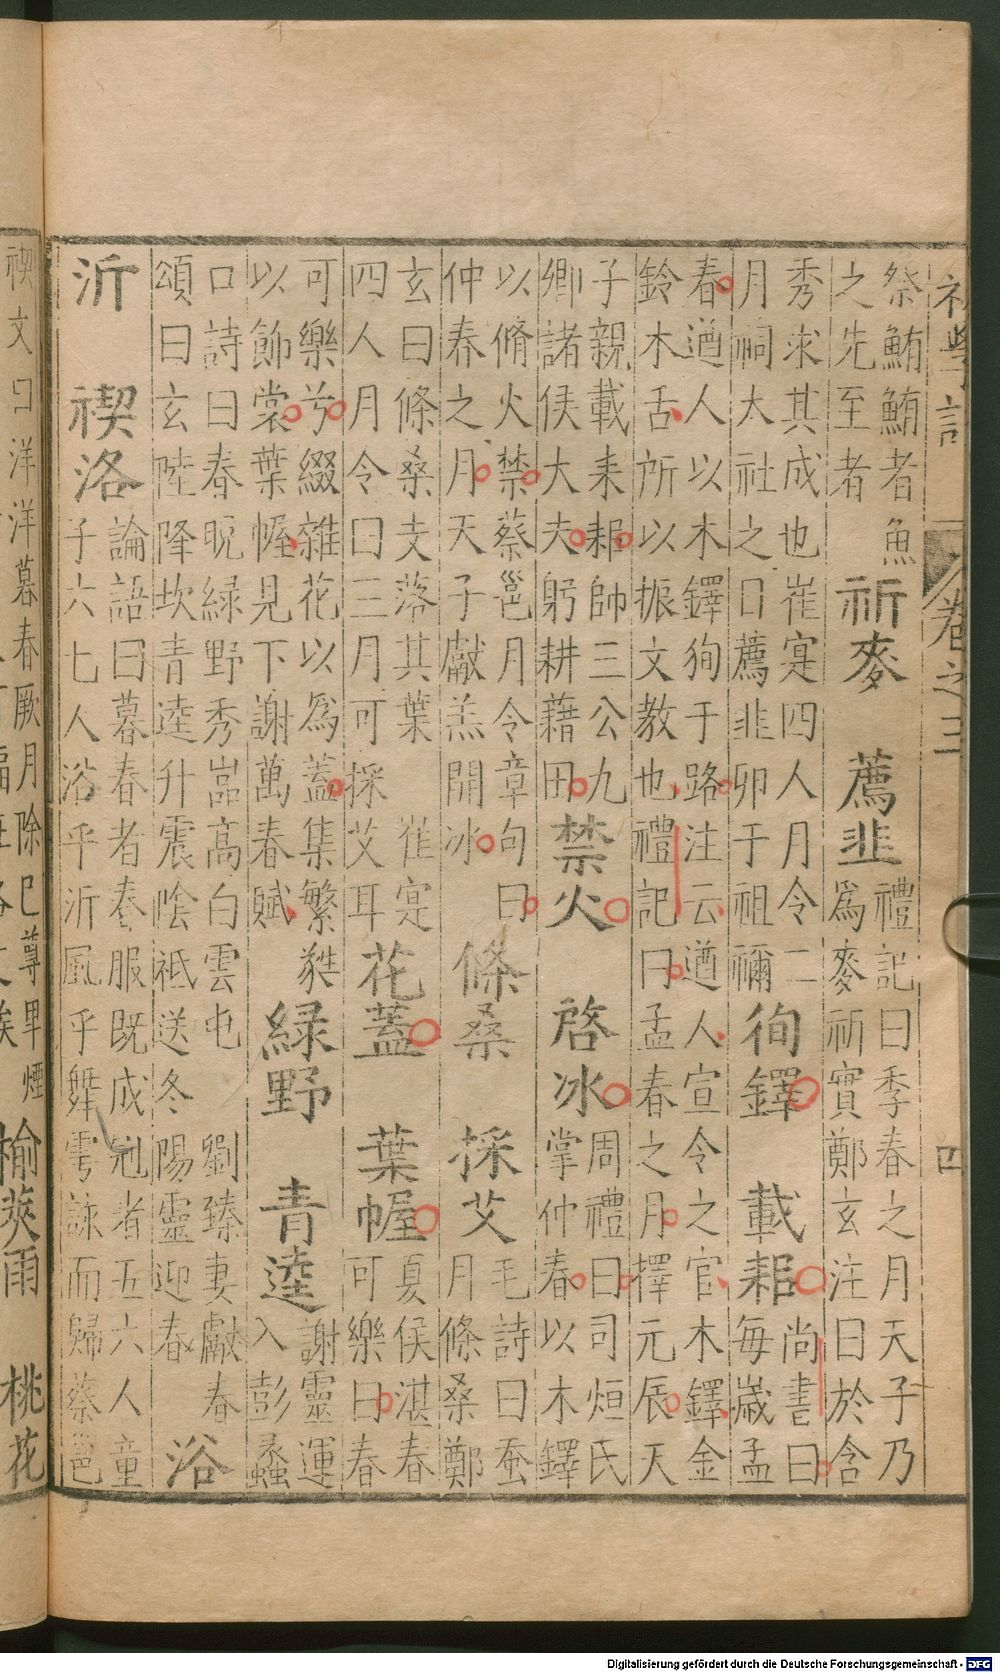 初學記 卷之三 四
祭鮪鮪者魚
之先至者
祈麥 薦韭
禮記曰季春之月天子乃
爲麥祈實鄭玄注曰於含
秀求其成也崔寔四人月令二
月祠太社之日薦韭卯于祖禰
徇鐸 載耜
尚書曰
每嵗孟
春遒人以木鐸徇于路注云遒人宣令之官木鐸金
鈴木舌所以振文教也禮記曰孟春之月擇元辰天
子親載耒耜帥三公九
卿諸侯大夫躬耕藉田
禁火 啓冰
周禮曰司烜氏
掌仲春以木鐸
以脩火禁蔡邕月令章句曰
仲春之月天子獻羔開冰
條桑 採艾
毛詩曰蚕
月條桑鄭
玄曰條桑支落其葉 崔寔
四人月令曰三月可採艾耳
花蓋 葉幄
夏侯湛春
可樂曰春
可樂兮綴雜花以爲蓋集繁蕤
以飾裳葉幄見下謝萬春賦
緑野 青逵
謝靈運
入彭蠡
口詩曰春晩緑野秀嵓高白雲屯 劉臻妻獻春
頌曰玄陸降坎青逵升震陰祇送冬 陽靈迎春
浴
沂 禊洛
論語曰暮春者春服既成冠者五六人童
子六七人浴乎沂風乎舞雩詠而歸蔡邕
禊文曰洋洋暮春厥月除巳尊卑煙
榆莢雨 桃花
Digitalisierung gefördert durch die Deutsche Forschungsgemeinschaft - DFG